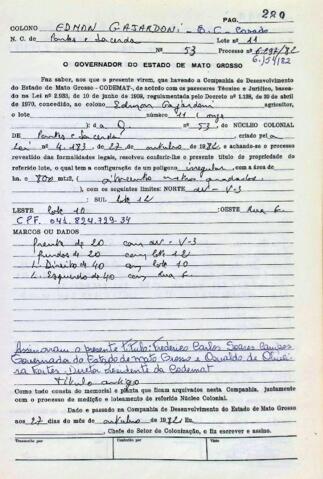 PAG. 220
COLONO EDMAN GAJARDONI - B.C. Casado
N. C. de Pontes e Lacerda Lote nº 11
Nº 53 Processo nº 6.192/82
6.154/82
O GOVERNADOR DO ESTADO DE MATO GROSSO
Faz saber, aos que o presente virem, que havendo a Companhia de Desenvolvimento
do Estado de Mato Grosso - CODEMAT-, de acôrdo com os pareceres Técnico e Jurídico, basea-
do na Lei nº 2.933, de 10 de junho de 1969, regulamentada pelo Decreto nº 1.138, de 29 de abril
de 1970, concedido ao colono Edman Gajardoni agricultor,
o lote número 11 (onze
): a Q. nº 53, DO NÚCLEO COLONIAL
DE Pontes e Lacerda criado pela
Lei nº 4.183, de 27 de outubro de 1982, e achando-se o processo
revestido das formalidades legais, resolveu conferir-lhe o presente título de propriedade do
referido lote, o qual tem a configuração de um polígono irregular, com a área de
ha e 800 mtr2, ( oitocentos metros quadrados.
), com os seguintes limites: NORTE Av - V-3
; SUL lote 12
LESTE lote 10 ; OESTE Rua G.
CPF. 041.824.729-34
MARCOS OU DADOS
frente de 20 com Av - V-3
fundos de 20 com lote 12
L. Direito de 40 com lote 10
L. Esquerdo de 40 com Rua G
Assinaram o presente título: Frederico Carlos Soares Campos
Governador do Estado de Mato Grosso e Osvaldo de Olivei
ra Fortes, Diretor Presidente da Codemat
título antigo
Como tudo consta do memorial e planta que ficam arquivados nesta Companhia, juntamente
com o processo de medição e loteamento do referido Núcleo Colonial.
Dado e passado na Companhia de Desenvolvimento do Estado de Mato Grosso
aos 27 dias do mês de outubro de 1982 Eu,
, Chefe do Setor de Colonização, o fiz escrever e assino.
Transcrito por Conferido por Visto